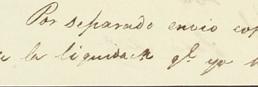 Por separado envio cop
a la liquidacn qe yo